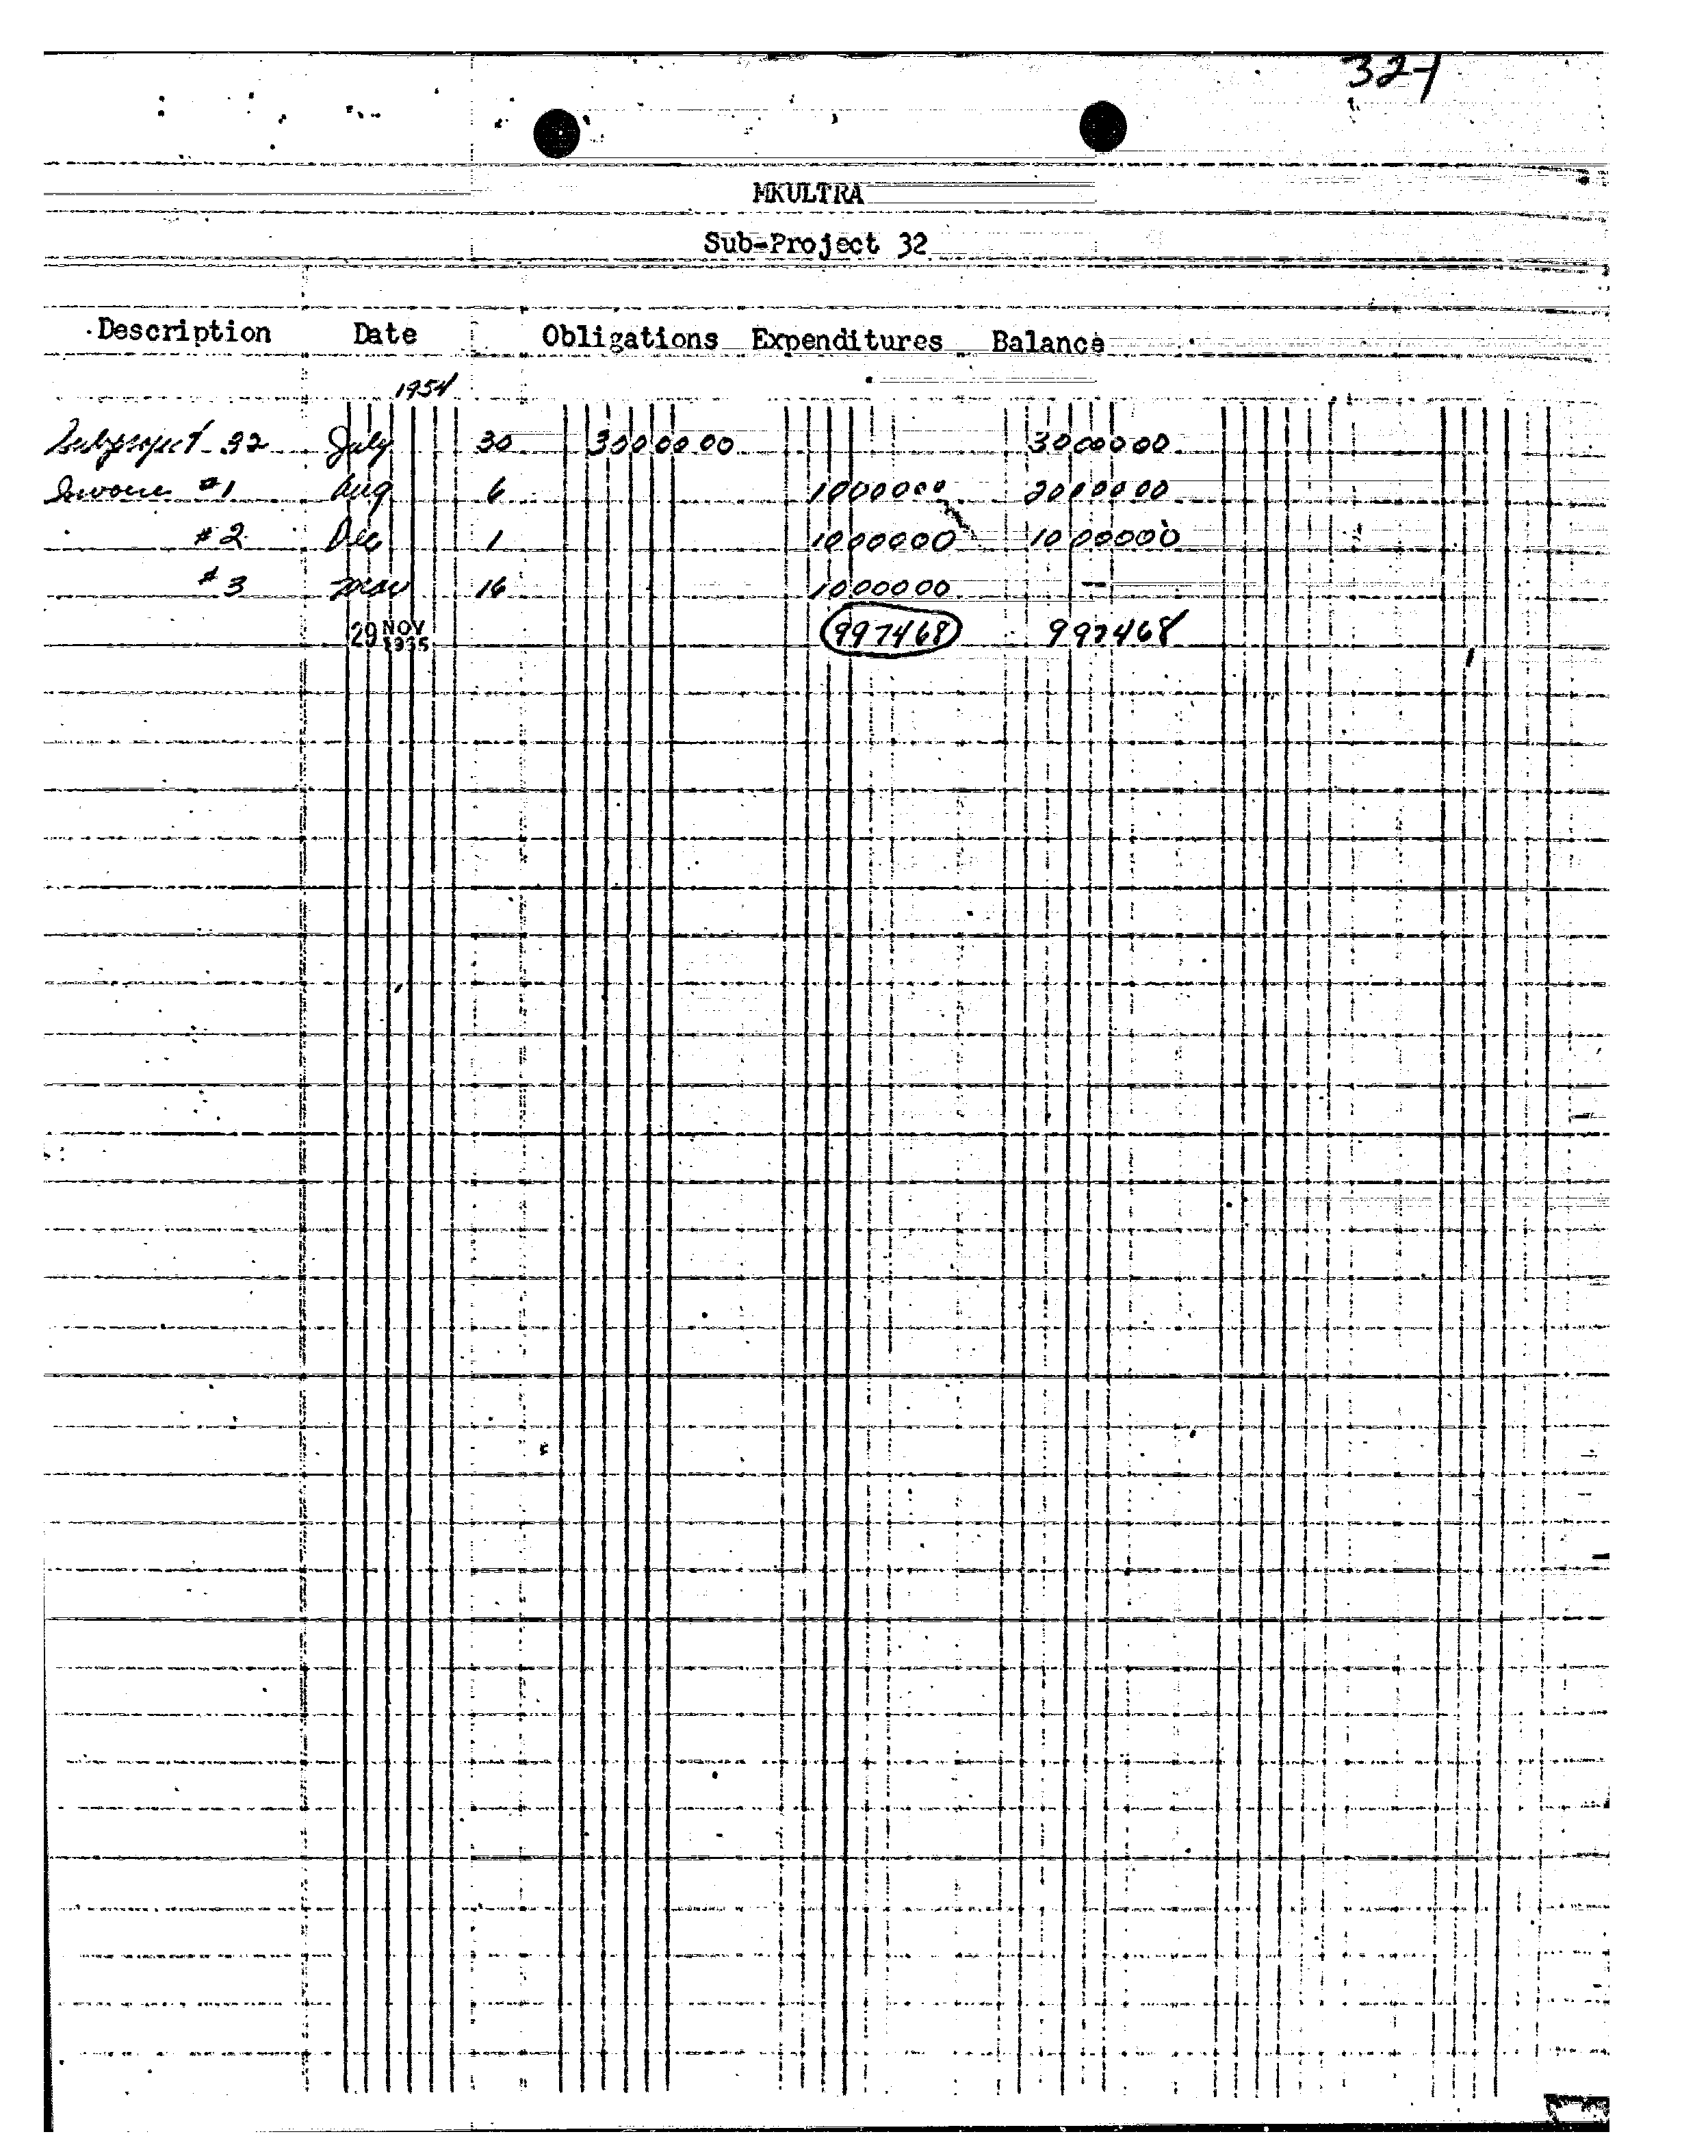 32-1
MKULTRA
Sub-Project 32
Description Date Obligations Expenditures Balance
1954
Subproject 32 July 30 3000000 3000000
Invoice #1 Aug 6 1000000 2000000
#2 Dec 1 1000000 1000000
#3 Mar 16 1000000 —
29 NOV 1955 997468 997468